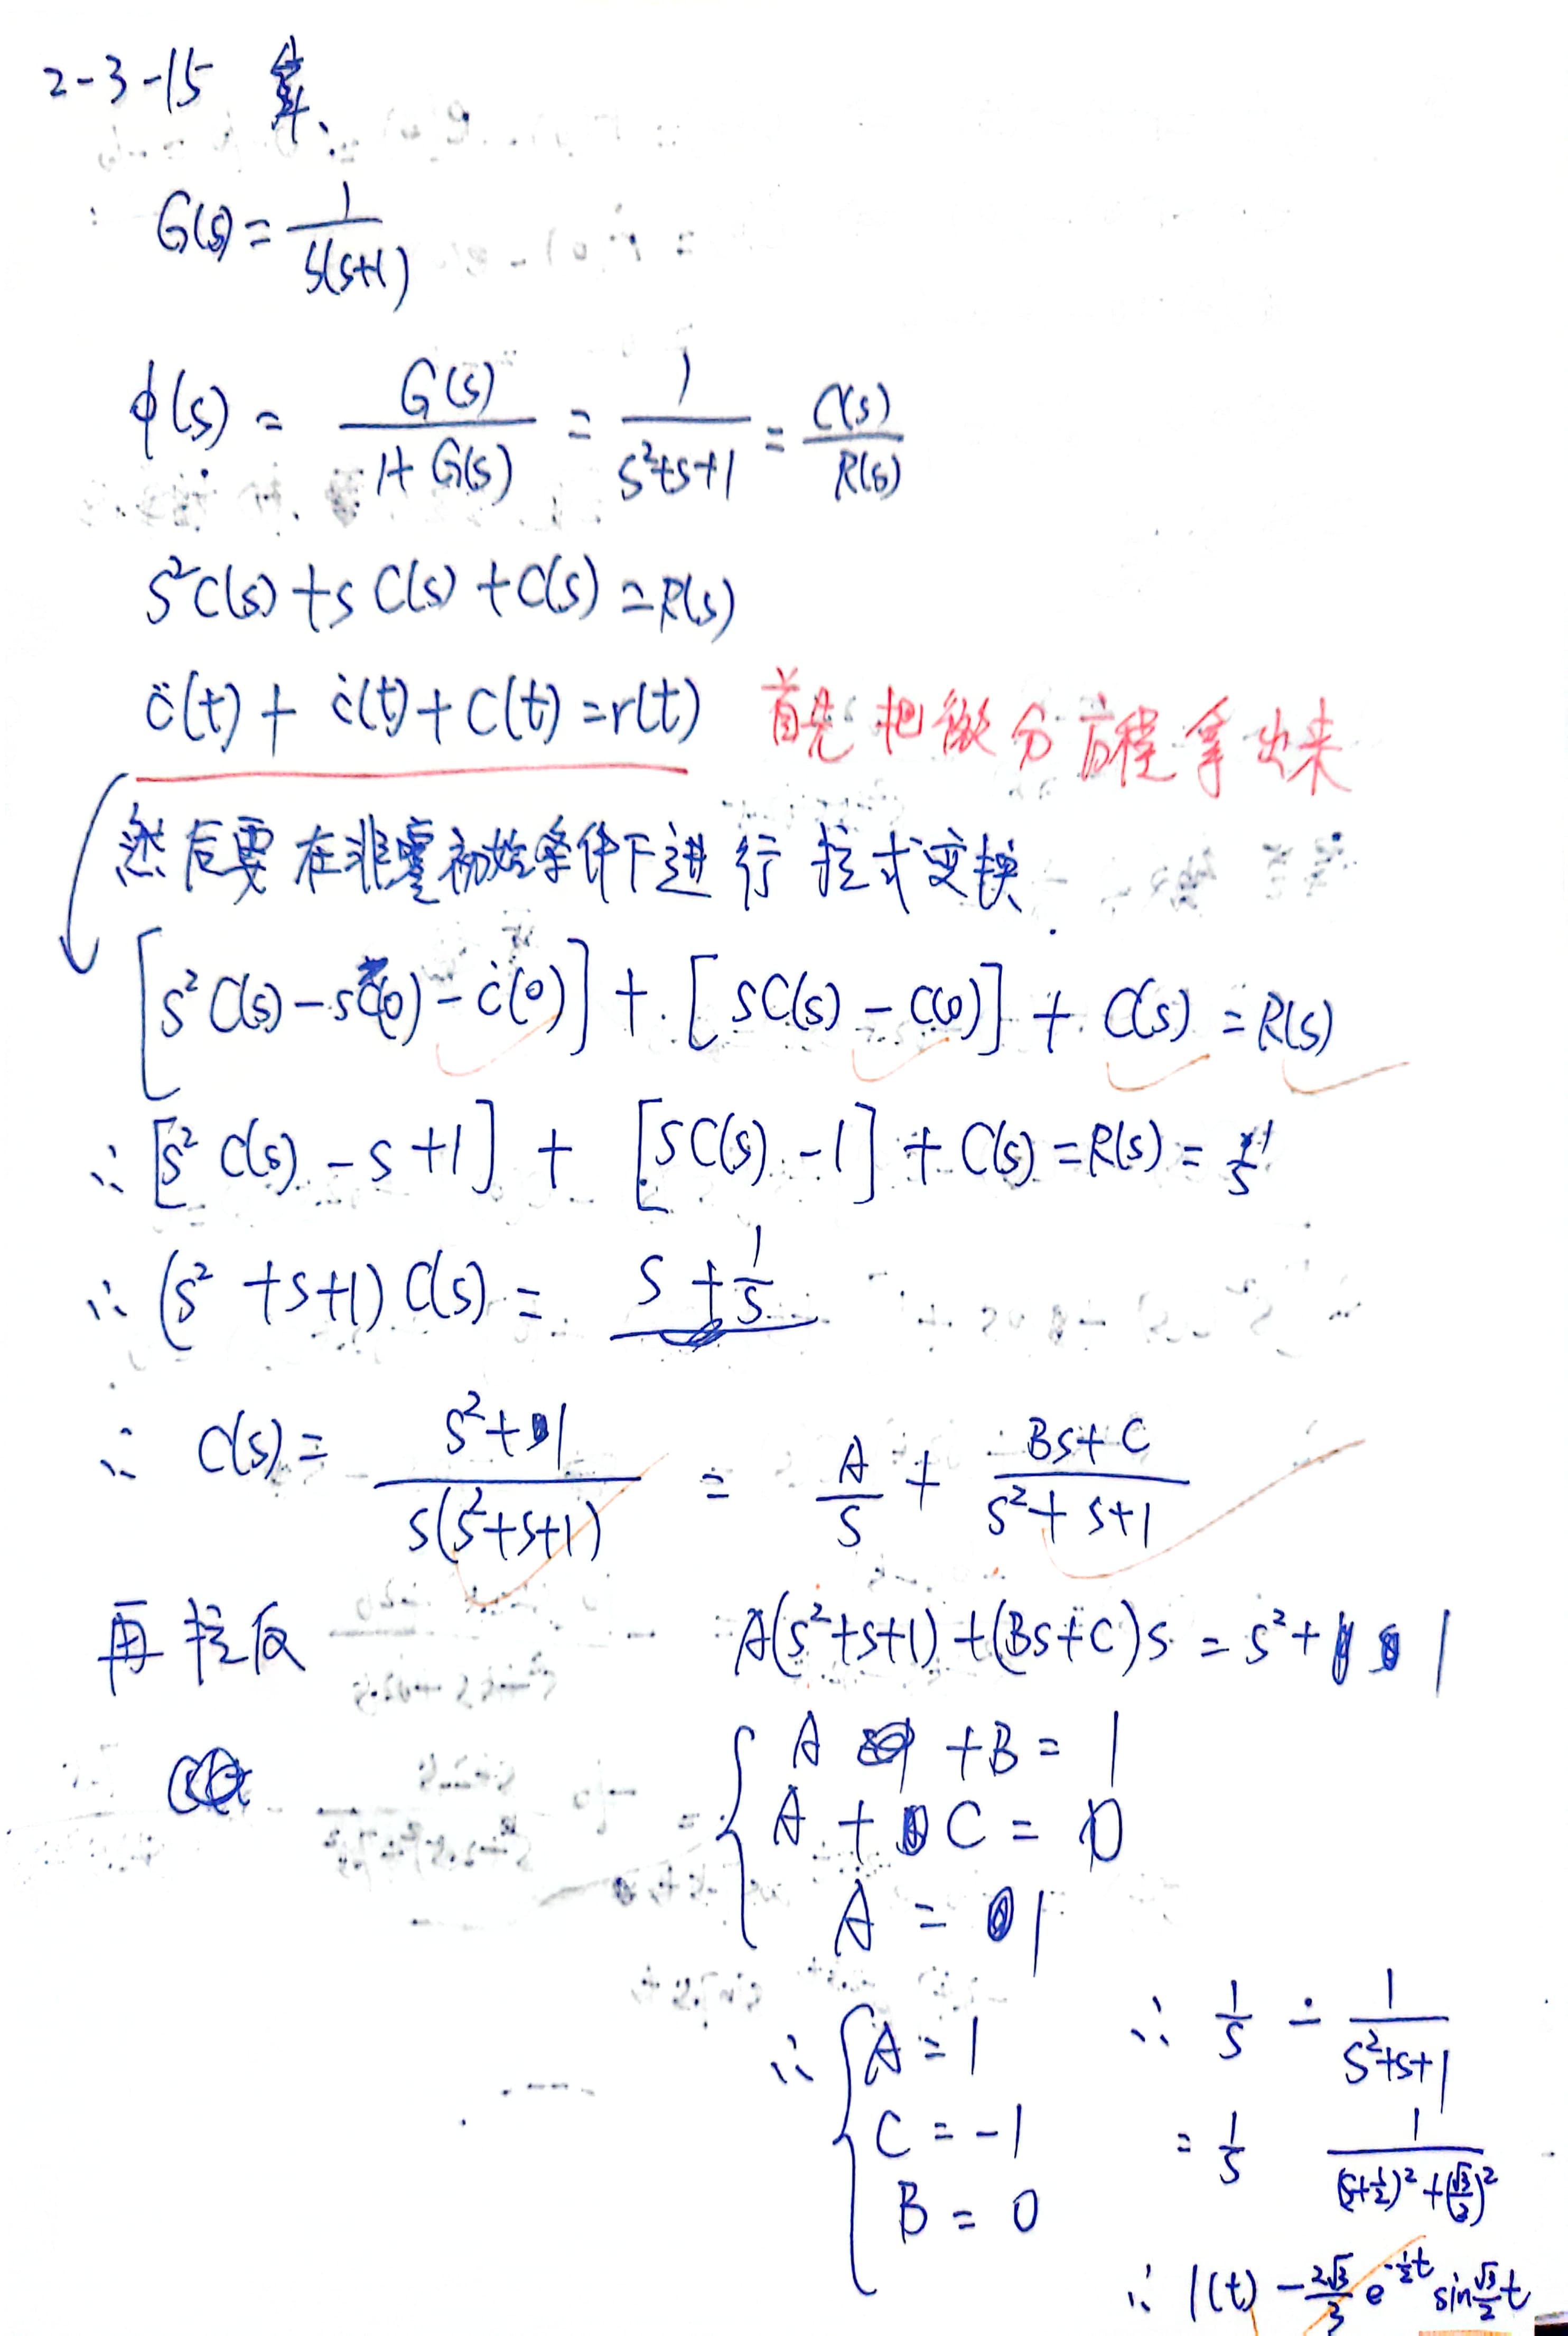 2-3-15
G(s) = 1/(s(s+1))
ϕ(s) = G(s)/(1+G(s)) = 1/(s²+s+1) = C(s)/R(s)
s²C(s) + sC(s) + C(s) = R(s)
c̈(t) + ċ(t) + c(t) = r(t) 首先把微分方程拿出来
然后要在非零初始条件下进行拉式变换
[s²C(s) - sC(0) - ċ(0)] + [sC(s) - C(0)] + C(s) = R(s)
∴ [s²C(s) - s + 1] + [sC(s) - 1] + C(s) = R(s) = 1/s
∴ (s² + s + 1) C(s) = s + 1/s
∴ C(s) = (s²+1)/(s(s²+s+1)) = A/s + (Bs+C)/(s²+s+1)
再拉反 A(s²+s+1) + (Bs+C)s = s² + 1
{ A + B = 1
A + C = 0
A = 1
∴ { A = 1 ∴ 1/s - 1/(s²+s+1)
C = -1 = 1/s 1/((s+1/2)² + (√3/2)²)
B = 0
∴ 1(t) - 2√3/3 e^(-1/2 t) sin √3/2 t